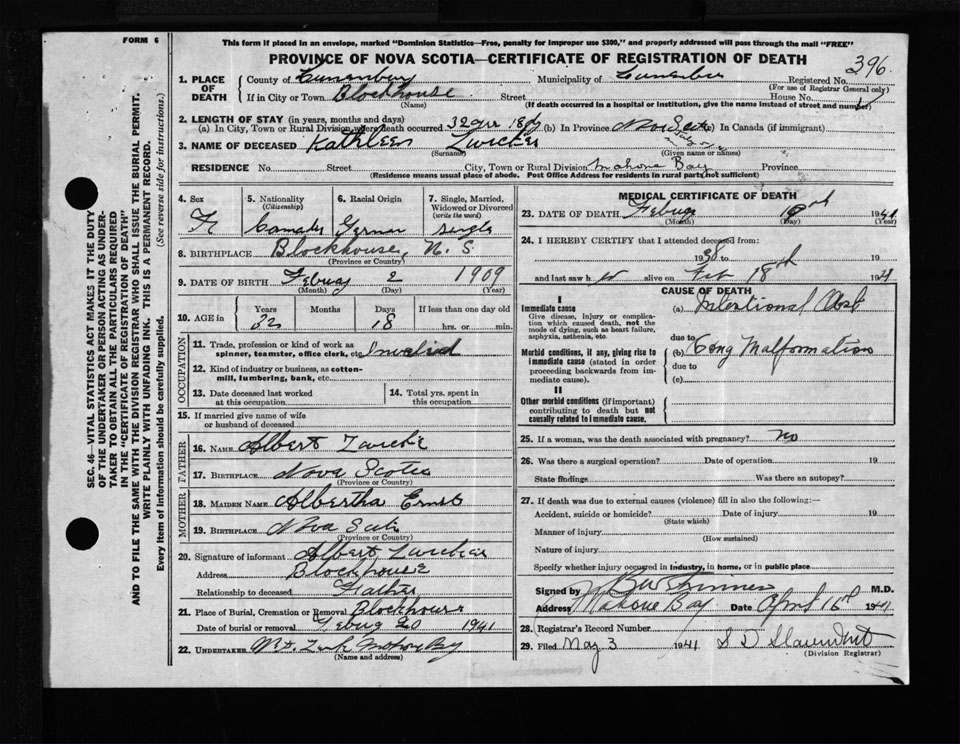 FORM 6
This form if placed in an envelope, marked "Dominion Statistics—Free, penalty for improper use $300," and properly addressed will pass through the mail "FREE"
PROVINCE OF NOVA SCOTIA—CERTIFICATE OF REGISTRATION OF DEATH
396.
1. PLACE OF DEATH
County of Lunenburg Municipality of Registered No.
(For use of Registrar General only)
If in City or Town Blockhouse Street House No.
(Name) (If death occurred in a hospital or institution, give the name instead of street and number)
2. LENGTH OF STAY (in years, months and days)
(a) In City, Town or Rural Division where death occurred 32 yrs 18 dy (b) In Province Nova Scotia (c) In Canada (if immigrant)
3. NAME OF DECEASED Kathleen Zwicker
(Surname) (Given name or names)
RESIDENCE No. Street City, Town or Rural Division Mahone Bay Province
(Residence means usual place of abode. Post Office Address for residents in rural parts not sufficient)
4. Sex
F
5. Nationality
(Citizenship)
6. Racial Origin
German
7. Single, Married, Widowed or Divorced
(write the word)
Single
8. BIRTHPLACE Blockhouse, N. S.
(Province or Country)
9. DATE OF BIRTH 2 1909
(Month) (Day) (Year)
10. AGE in
Years Months Days If less than one day old
32 18 hrs. or min.
OCCUPATION
11. Trade, profession or kind of work as spinner, teamster, office clerk, etc. Invalid
12. Kind of industry or business, as cotton-mill, lumbering, bank, etc.
13. Date deceased last worked at this occupation
14. Total yrs. spent in this occupation
15. If married give name of wife or husband of deceased
FATHER
16. NAME Albert Zwicker
17. BIRTHPLACE Nova Scotia
(Province or Country)
MOTHER
18. MAIDEN NAME Albertha Ernst
19. BIRTHPLACE Nova Scotia
(Province or Country)
20. Signature of informant Albert Zwicker
Address Blockhouse
Relationship to deceased Father
21. Place of Burial, Cremation or Removal Blockhouse
Date of burial or removal 20 1941
22. UNDERTAKER Mahone Bay
(Name and address)
MEDICAL CERTIFICATE OF DEATH
23. DATE OF DEATH 1941
(Month) (Day) (Year)
24. I HEREBY CERTIFY that I attended deceased from:
1938 to 19
and last saw h alive on Feb 18th 1941
CAUSE OF DEATH
I
Immediate cause
Give disease, injury or complication which caused death, not the mode of dying, such as heart failure, asphyxia, asthenia, etc.
(a) Intestinal Obst
due to
Morbid conditions, if any, giving rise to immediate cause (stated in order proceeding backwards from immediate cause).
(b) Cong Malformation
due to
(c)
II
Other morbid conditions (if important) contributing to death but not causally related to immediate cause.
25. If a woman, was the death associated with pregnancy? no
26. Was there a surgical operation? Date of operation 19
State findings Was there an autopsy?
27. If death was due to external causes (violence) fill in also the following:—
Accident, suicide or homicide? Date of injury 19
(State which)
Manner of injury
(How sustained)
Nature of injury
Specify whether injury occurred in industry, in home, or in public place
Signed by M.D.
Address Mahone Bay Date April 16th 1941
28. Registrar's Record Number
29. Filed May 3 1941
(Division Registrar)
SEC. 46—VITAL STATISTICS ACT MAKES IT THE DUTY
OF THE UNDERTAKER OR PERSON ACTING AS UNDER-
TAKER TO OBTAIN ALL THE PARTICULARS REQUIRED
IN THE "CERTIFICATE OF REGISTRATION OF DEATH"
AND TO FILE THE SAME WITH THE DIVISION REGISTRAR WHO SHALL ISSUE THE BURIAL PERMIT.
WRITE PLAINLY WITH UNFADING INK. THIS IS A PERMANENT RECORD.
Every item of information should be carefully supplied. (See reverse side for instructions.)